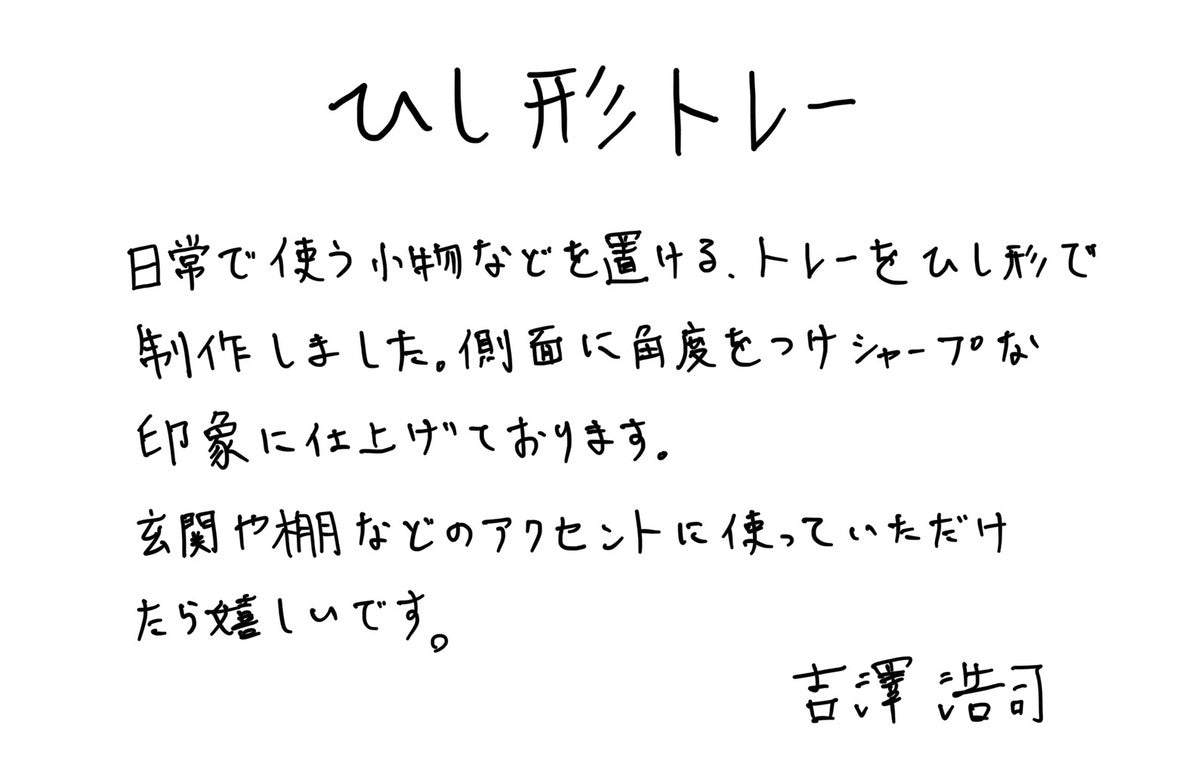 ひし形トレー
日常で使う小物などを置ける、トレーをひし形で
制作しました。側面に角度をつけシャープな
印象に仕上げております。
玄関や棚などのアクセントに使っていただけ
たら嬉しいです。
吉澤 浩司